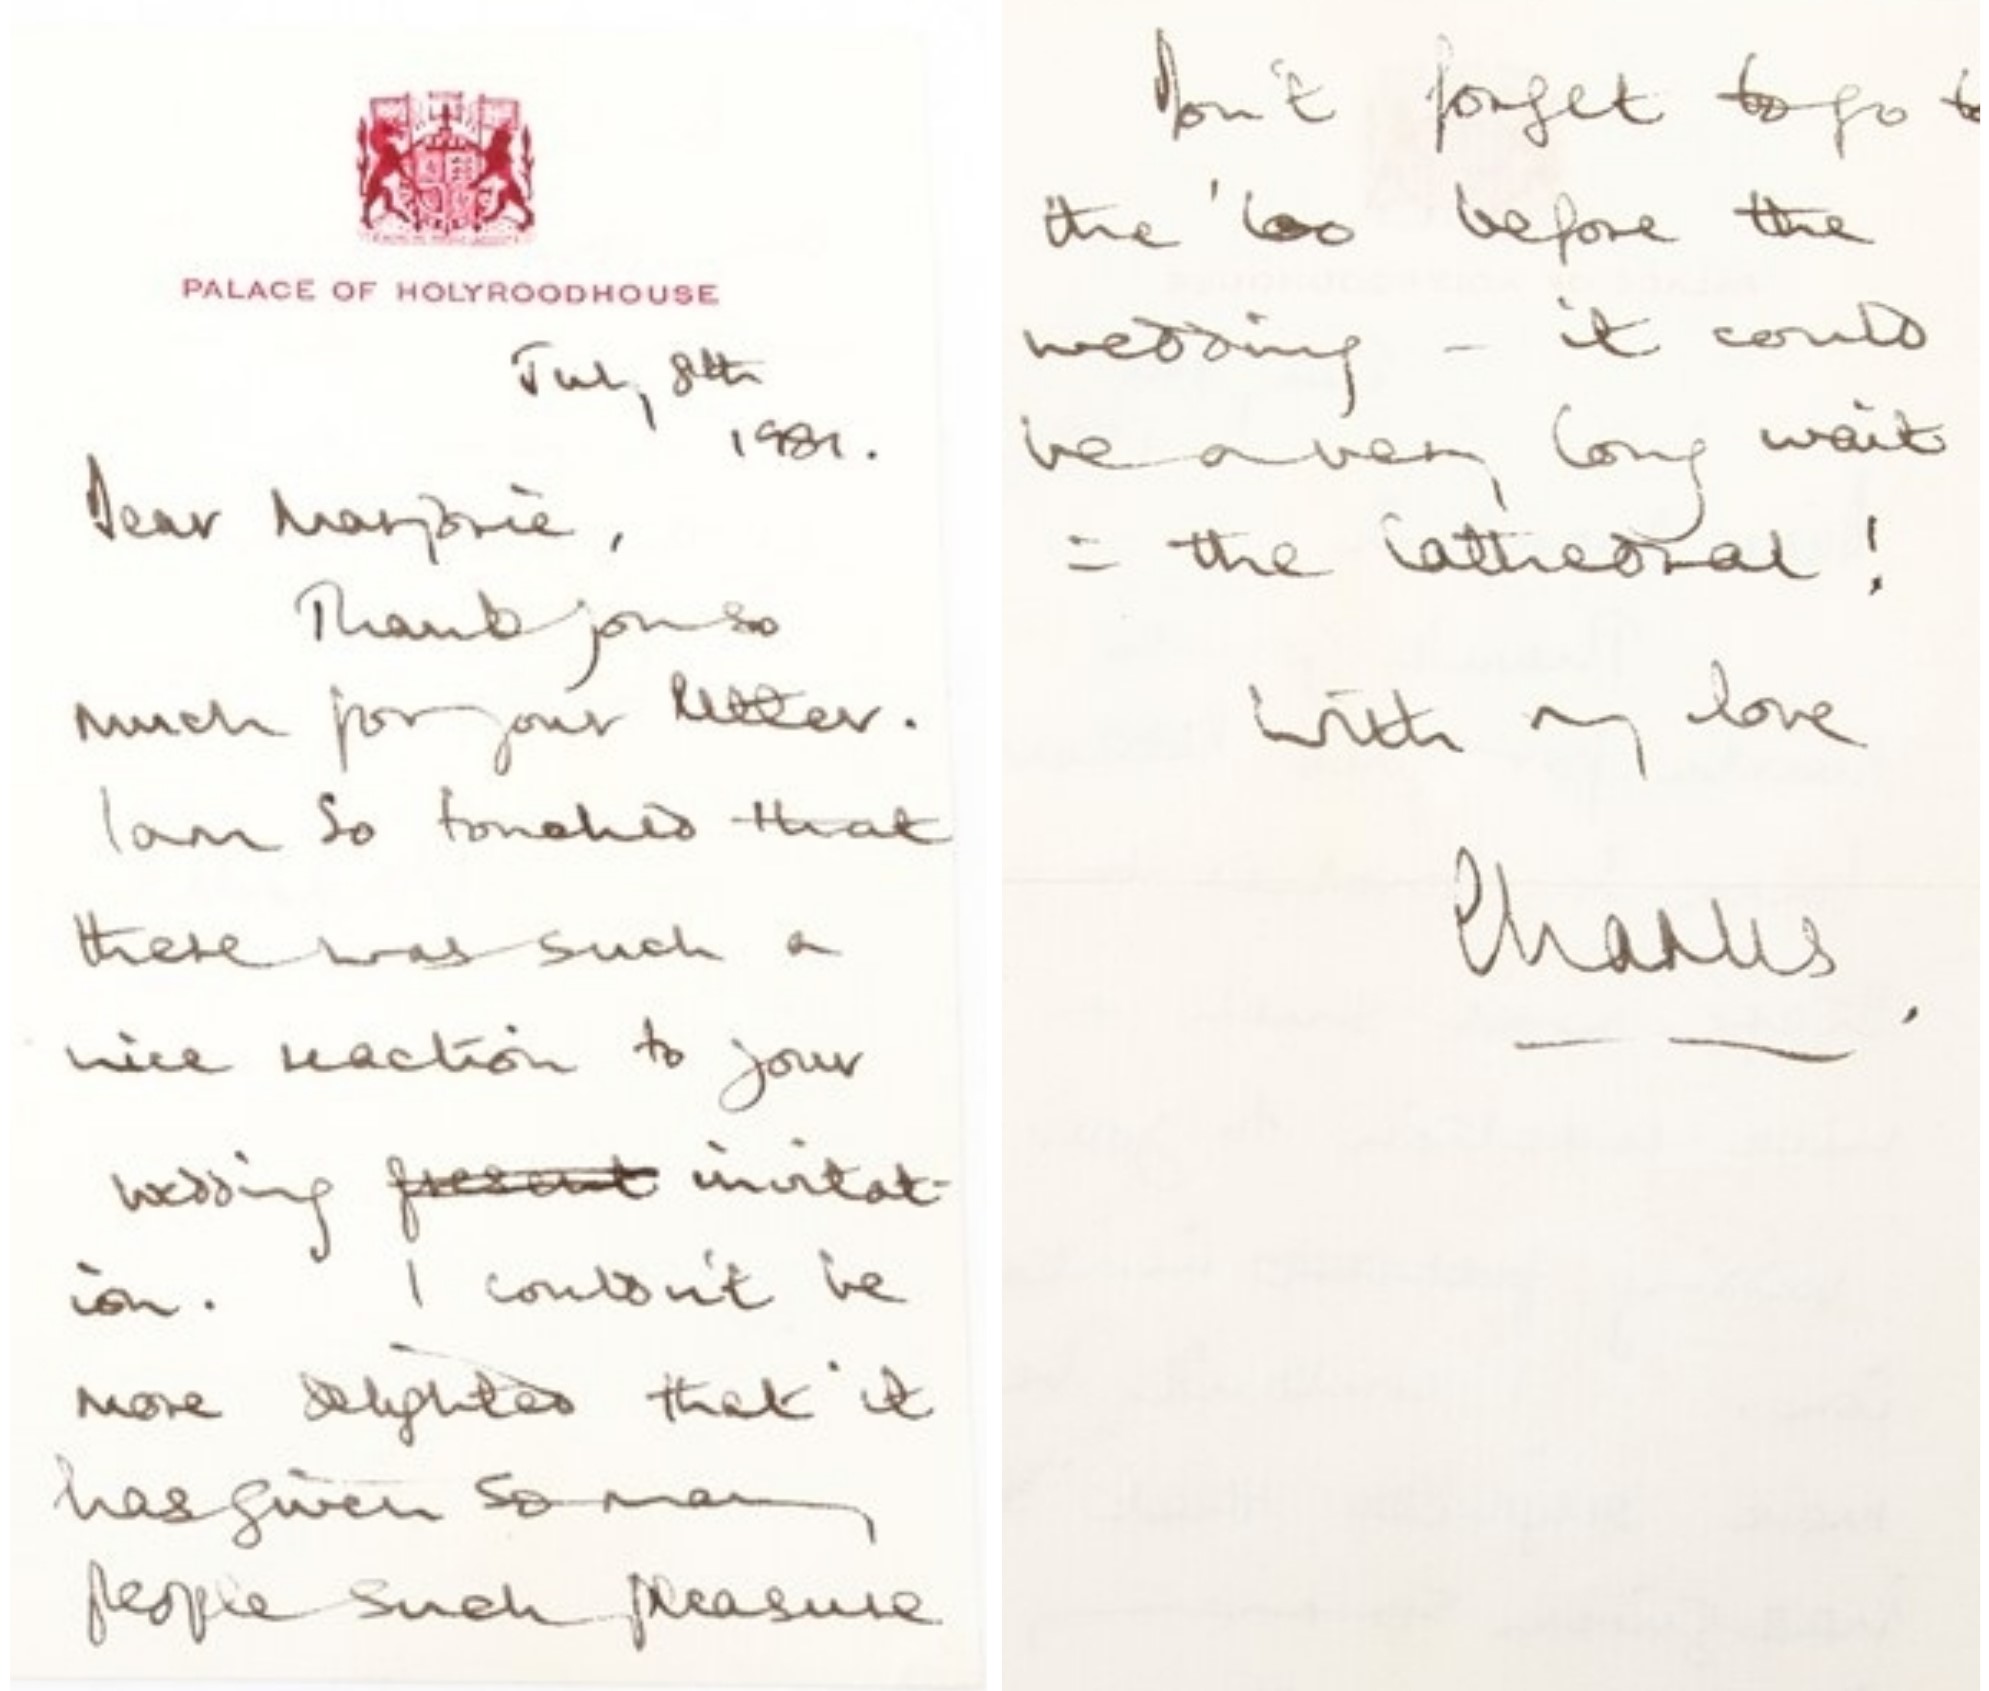 PALACE OF HOLYROODHOUSE
July 8th
1981.
Dear Marjorie,
Thank you so
much for your letter.
I am so touched that
there was such a
nice reaction to your
wedding present invitat-
ion. I couldn't be
more delighted that it
has given so many
people such pleasure
Don't forget to go to
the 'loo before the
wedding – it could
be a very long wait
= the Cathedral!
With my love
Charles.